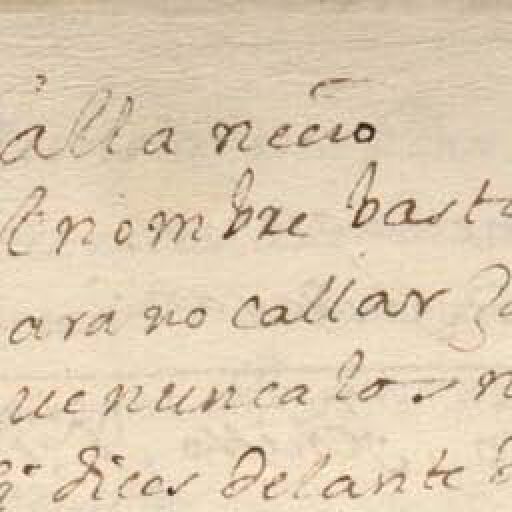 alla necio
l nombre basta
ara no callar
ue nunca los n
q dices delante